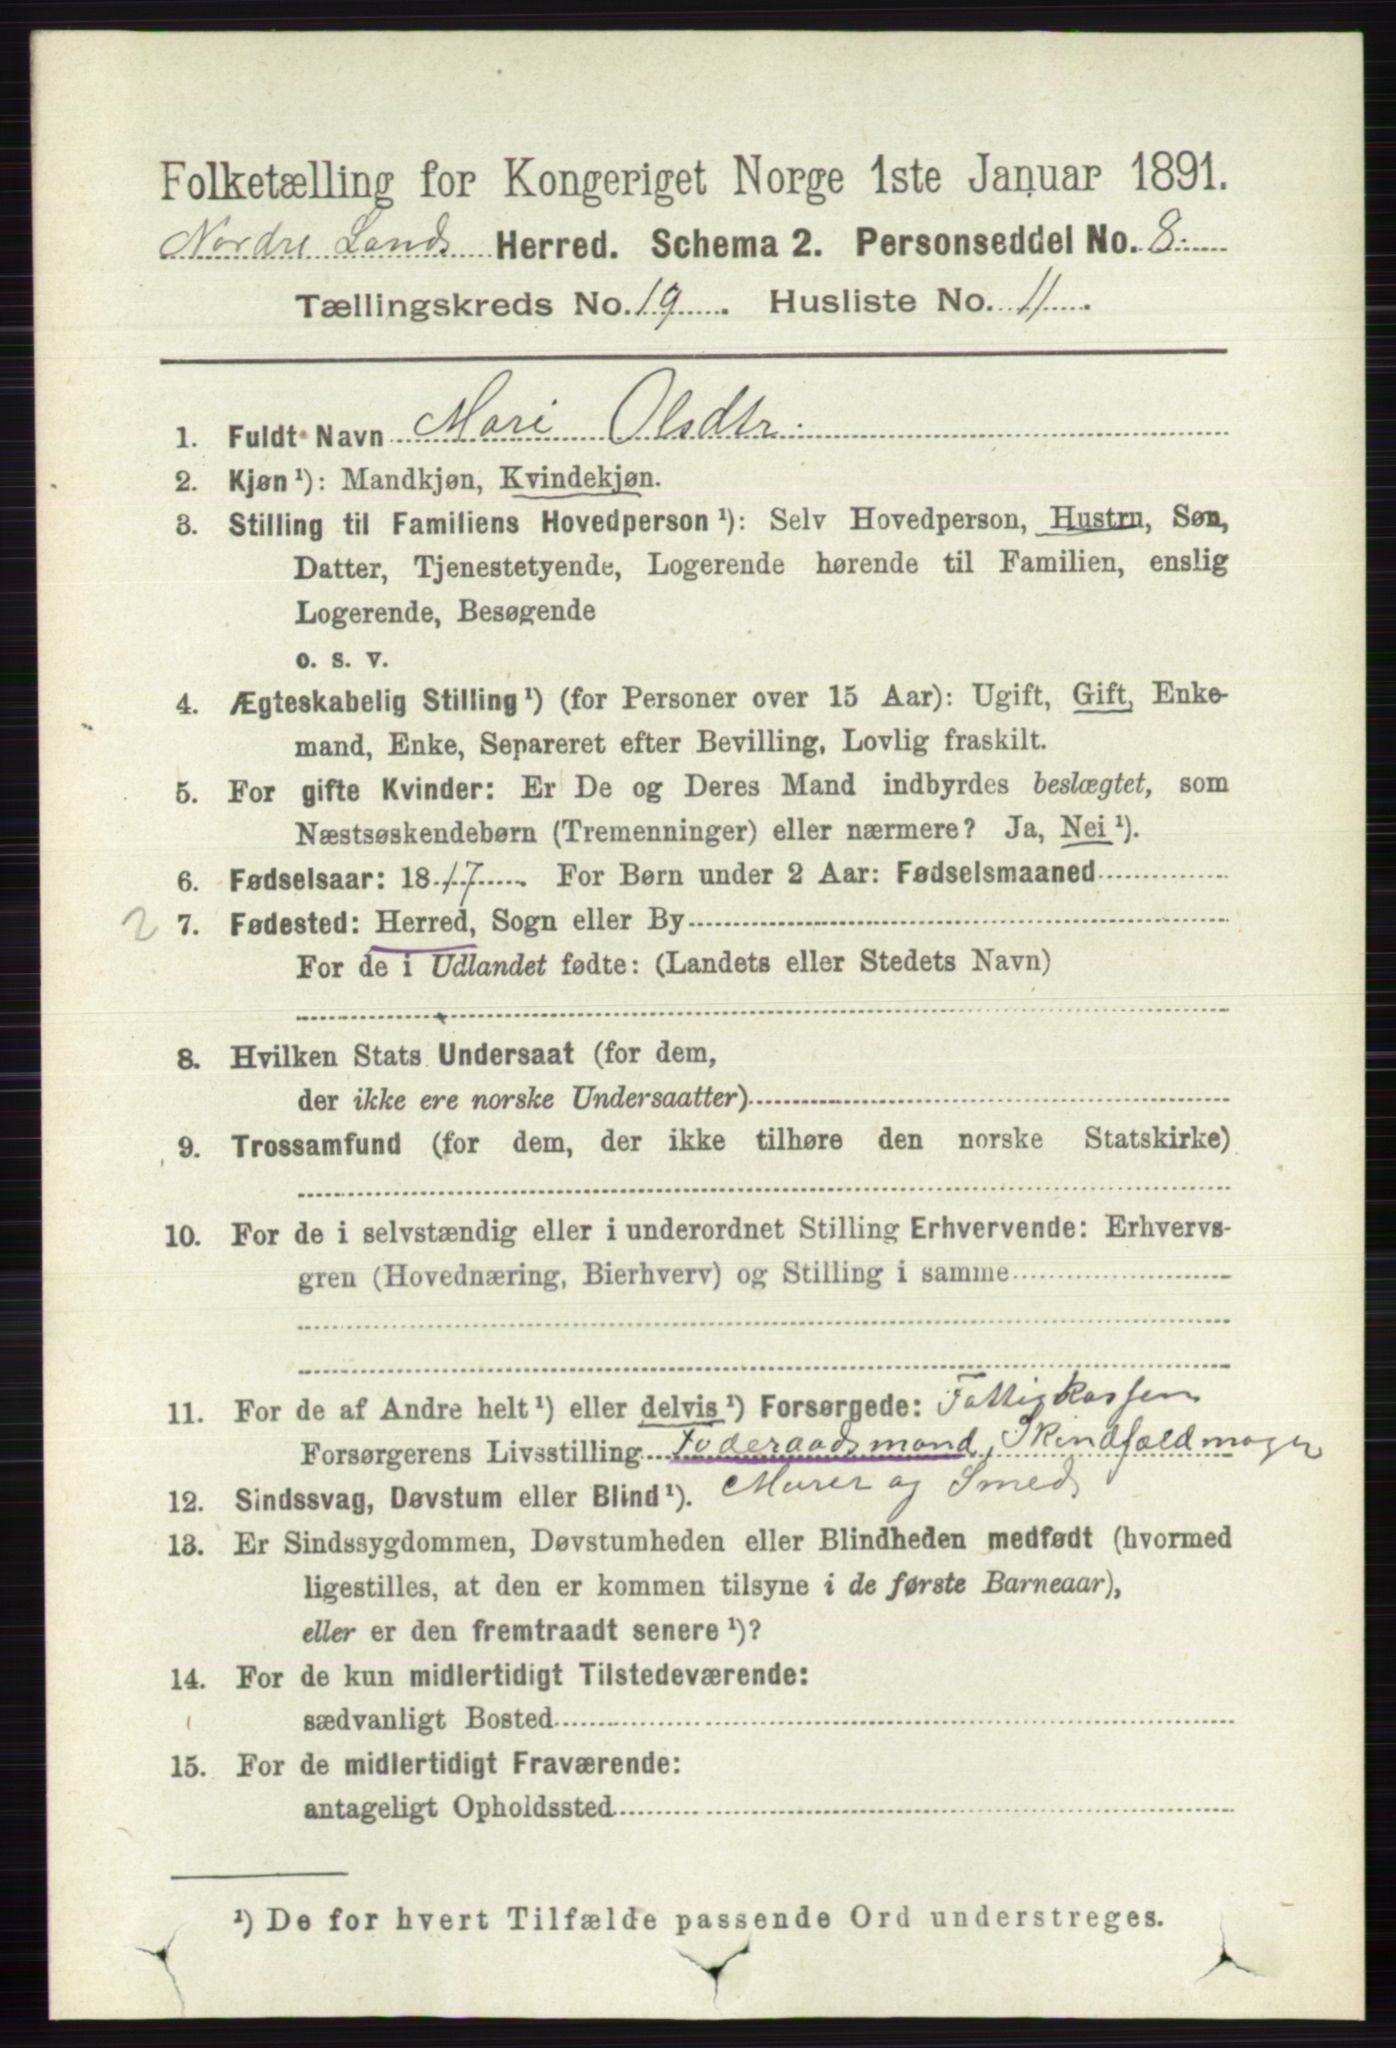 Folketælling for Kongeriget Norge 1ste Januar 1891.
Nordre Lands Herred. Schema 2. Personseddel No. 8.
Tællingskreds No. 19. Husliste No. 11.
1. Fuldt Navn Mari Olsdtr.
2. Kjøn ¹): Mandkjøn, Kvindekjøn.
3. Stilling til Familiens Hovedperson ¹): Selv Hovedperson, Hustru, Søn,
Datter, Tjenestetyende, Logerende hørende til Familien, enslig
Logerende, Besøgende
o. s. v.
4. Ægteskabelig Stilling ¹) (for Personer over 15 Aar): Ugift, Gift, Enke-
mand, Enke, Separeret efter Bevilling, Lovlig fraskilt.
5. For gifte Kvinder: Er De og Deres Mand indbyrdes beslægtet, som
Næstsøskendebørn (Tremenninger) eller nærmere? Ja, Nei ¹).
6. Fødselsaar: 1817. For Børn under 2 Aar: Fødselsmaaned
2 7. Fødested: Herred, Sogn eller By
For de i Udlandet fødte: (Landets eller Stedets Navn)
8. Hvilken Stats Undersaat (for dem,
der ikke ere norske Undersaatter)
9. Trossamfund (for dem, der ikke tilhøre den norske Statskirke)
10. For de i selvstændig eller i underordnet Stilling Erhvervende: Erhvervs-
gren (Hovednæring, Bierhverv) og Stilling i samme
11. For de af Andre helt ¹) eller delvis ¹) Forsørgede: Fattigkassen
Forsørgerens Livsstilling Føderaadsmand, Skindfældmager
12. Sindssvag, Døvstum eller Blind ¹). Murer og Smed,
13. Er Sindssygdommen, Døvstumheden eller Blindheden medfødt (hvormed
ligestilles, at den er kommen tilsyne i de første Barneaar),
eller er den fremtraadt senere ¹)?
14. For de kun midlertidigt Tilstedeværende:
sædvanligt Bosted
15. For de midlertidigt Fraværende:
antageligt Opholdssted
¹) De for hvert Tilfælde passende Ord understreges.